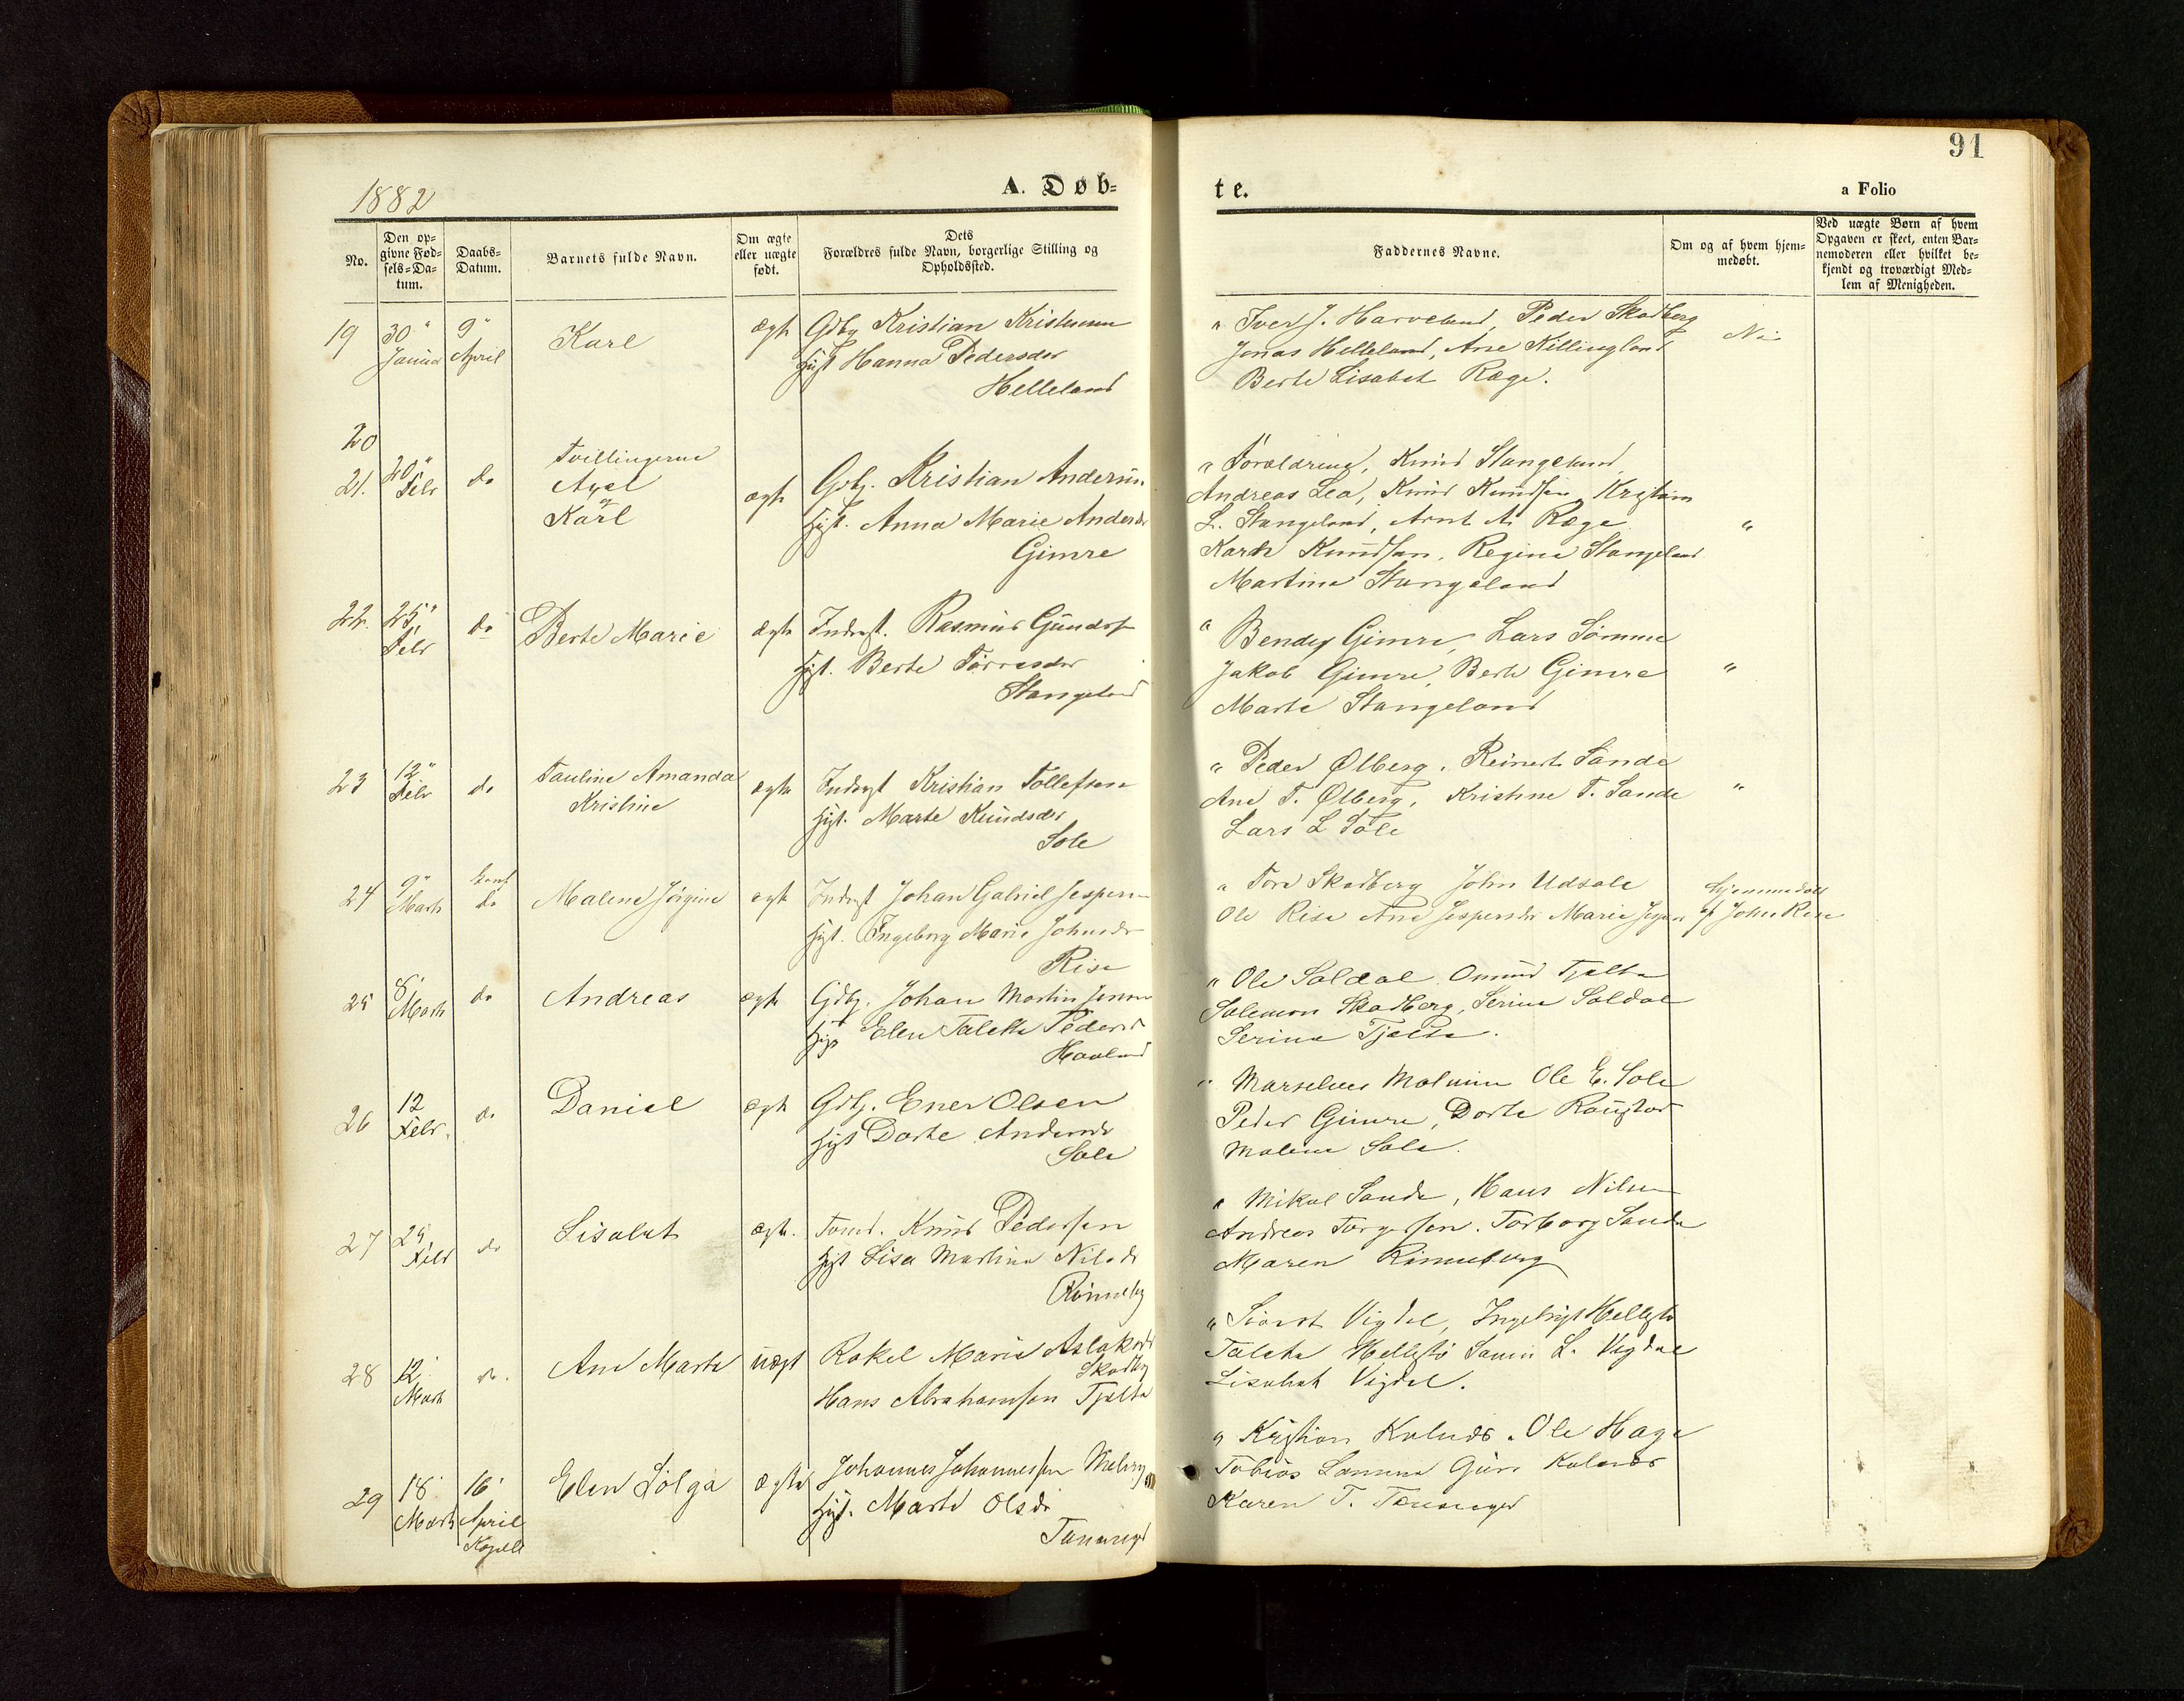 91
1882
A. Døb=
te.
a Folio
No.
Den op=
givne Fød=
sels=Da=
tum.
Daabs=
Datum.
Barnets fulde Navn.
Om ægte
eller uægte
født.
Dets
Forældres fulde Navn, borgerlige Stilling og
Opholdssted.
Faddernes Navne.
Om og af hvem hjem=
medøbt.
Ved uægte Børn af hvem
Opgaven er skeet, enten Bar=
nemoderen eller hvilket be=
kjendt og troværdigt Med=
lem af Menigheden.
19 30" Januar 9" April Karl ægte Gdbg Kristian
Hust Hanna Pedersdr
Helleland
" Iver J. Harveland, Peder Skadberg
Jonas Helleland, Ane Killingland
Berte Lisabet Ræge.
Nei
20
21. 20" Febr do Tvillingerne
Axel
og
Karl
ægte Gdbg. Kristian Andersen
Hust. Anna Marie Andersdr
Gimre
" Forældrene, Knud Stangeland
Andreas Lea, Knud Knudsen, Kristian
L. Stangeland, Arnt A. Ræge
Knudsen, Regine Stangeland
Martine Stangeland
"
22. 25" Febr do Berte Marie ægte Inderst. Rasmus Gunders
Hust. Berte Tørresdr
Stangeland
" Gimre, Lars Sømme
Jakob Gimre, Berte Gimre
Marte Stangeland
"
23 12" Febr do Pauline Amanda
Kristine
ægte Inderst Kristian Tollefsen
Hust. Marte Knudsdr
Sole
" Peder Ølberg, Reinert Sande
Ane T. Ølberg, Kristine T. Sande
Lars L Sole
"
24 9" Marts do Malene Jørgine ægte Inderst Johan Gabriel Jespersen
Hust. Ingeborg Marie Johnsdr
Risa
" Tore Skadberg John Udsole
Ole Risa Ane Jespersdr Marie
hjemmedøbt
af John Risa
25 8" Marts do Andreas ægte Gdbg. Johan Martin
Hust Elen Taletta Pedersd
Haaland
" Ole Soldal Omund Tjelta
Salemon Skadberg, Serine Soldal
Serina Tjelta.
26 12 Febr. do Daniel ægte Gdbg. Ener Olsen
Hust Dorte Andersdr
Sola
" Marselius Malmin Ole E. Sola
Peder Gimre, Dorte
Malene Sola.
27 25 Febr do Lisabet ægte. Knud Pedersen
Hust Lisa Martine Nilsdr
" Mikal Sande, Hans Nilsen
Andreas Torgersen. Torborg Sande
Maren Rønneberg
28 12 Marts do. Ane Marta uægt Rakel Marie Aslaksdr
Skadberg
Hans Abrahamsen Tjelta
" Vigdel, Ingebrigt Hellestø
Taleta Hellestø L. Vigdal
Lisabet Vigdel.
29 18 Marts 16 April
Kapell
Elen Solga ægte Johannes Johannessen
Hust. Marte Olsdr
Tananger
" Kristian Kolnes. Ole Haga
Tobias Kolnes
Karen T. Tananger